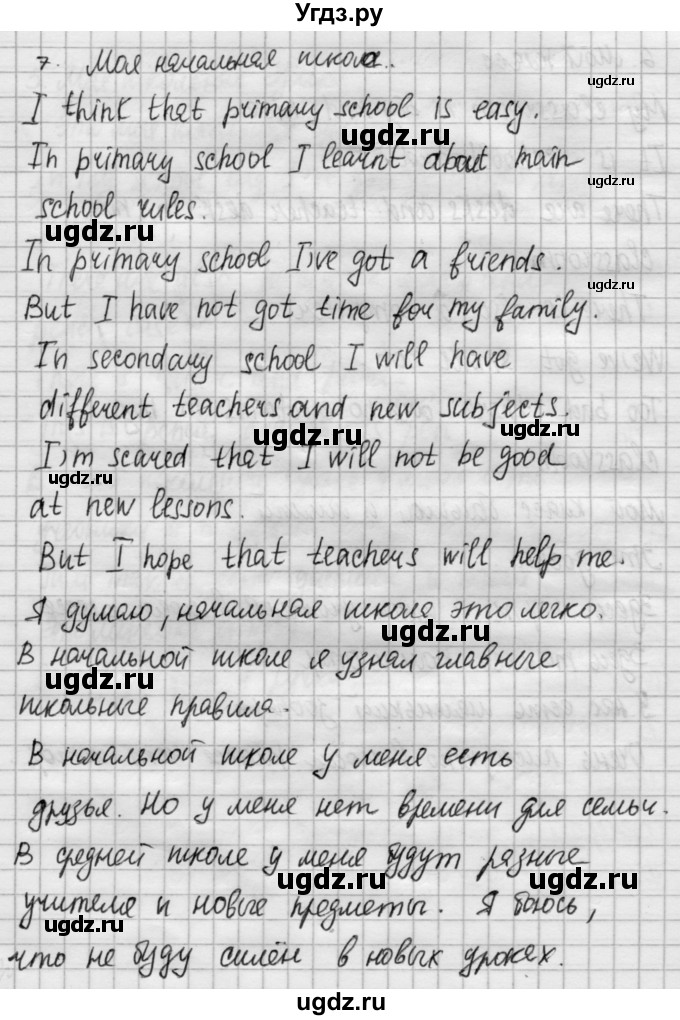 Угдз.ру
7. Моя начальная школа.
ugdz.ru
I think that primary school is easy.
ugdz.ru
In primary school I learnt about main
ugdz.ru
school rules.
ugdz.ru
In primary school I've got a friends.
ugdz.ru
But I have not got time for my family.
In secondary school I will have
different teachers and new subjects.
ugdz.ru
I'm scared that I will not be good
ugdz.ru
at new lessons.
But I hope that teachers will help me.
Я думаю, начальная школа это легко.
ugdz.ru
В начальной школе я узнал главные
ugdz.ru
школьные правила.
В начальной школе у меня есть
друзья. Но у меня нет времени для семьи.
В средней школе у меня будут разные
ugdz.ru
учителя и новые предметы. Я боюсь,
ugdz.ru
что не буду силён в новых уроках.
ugdz.ru